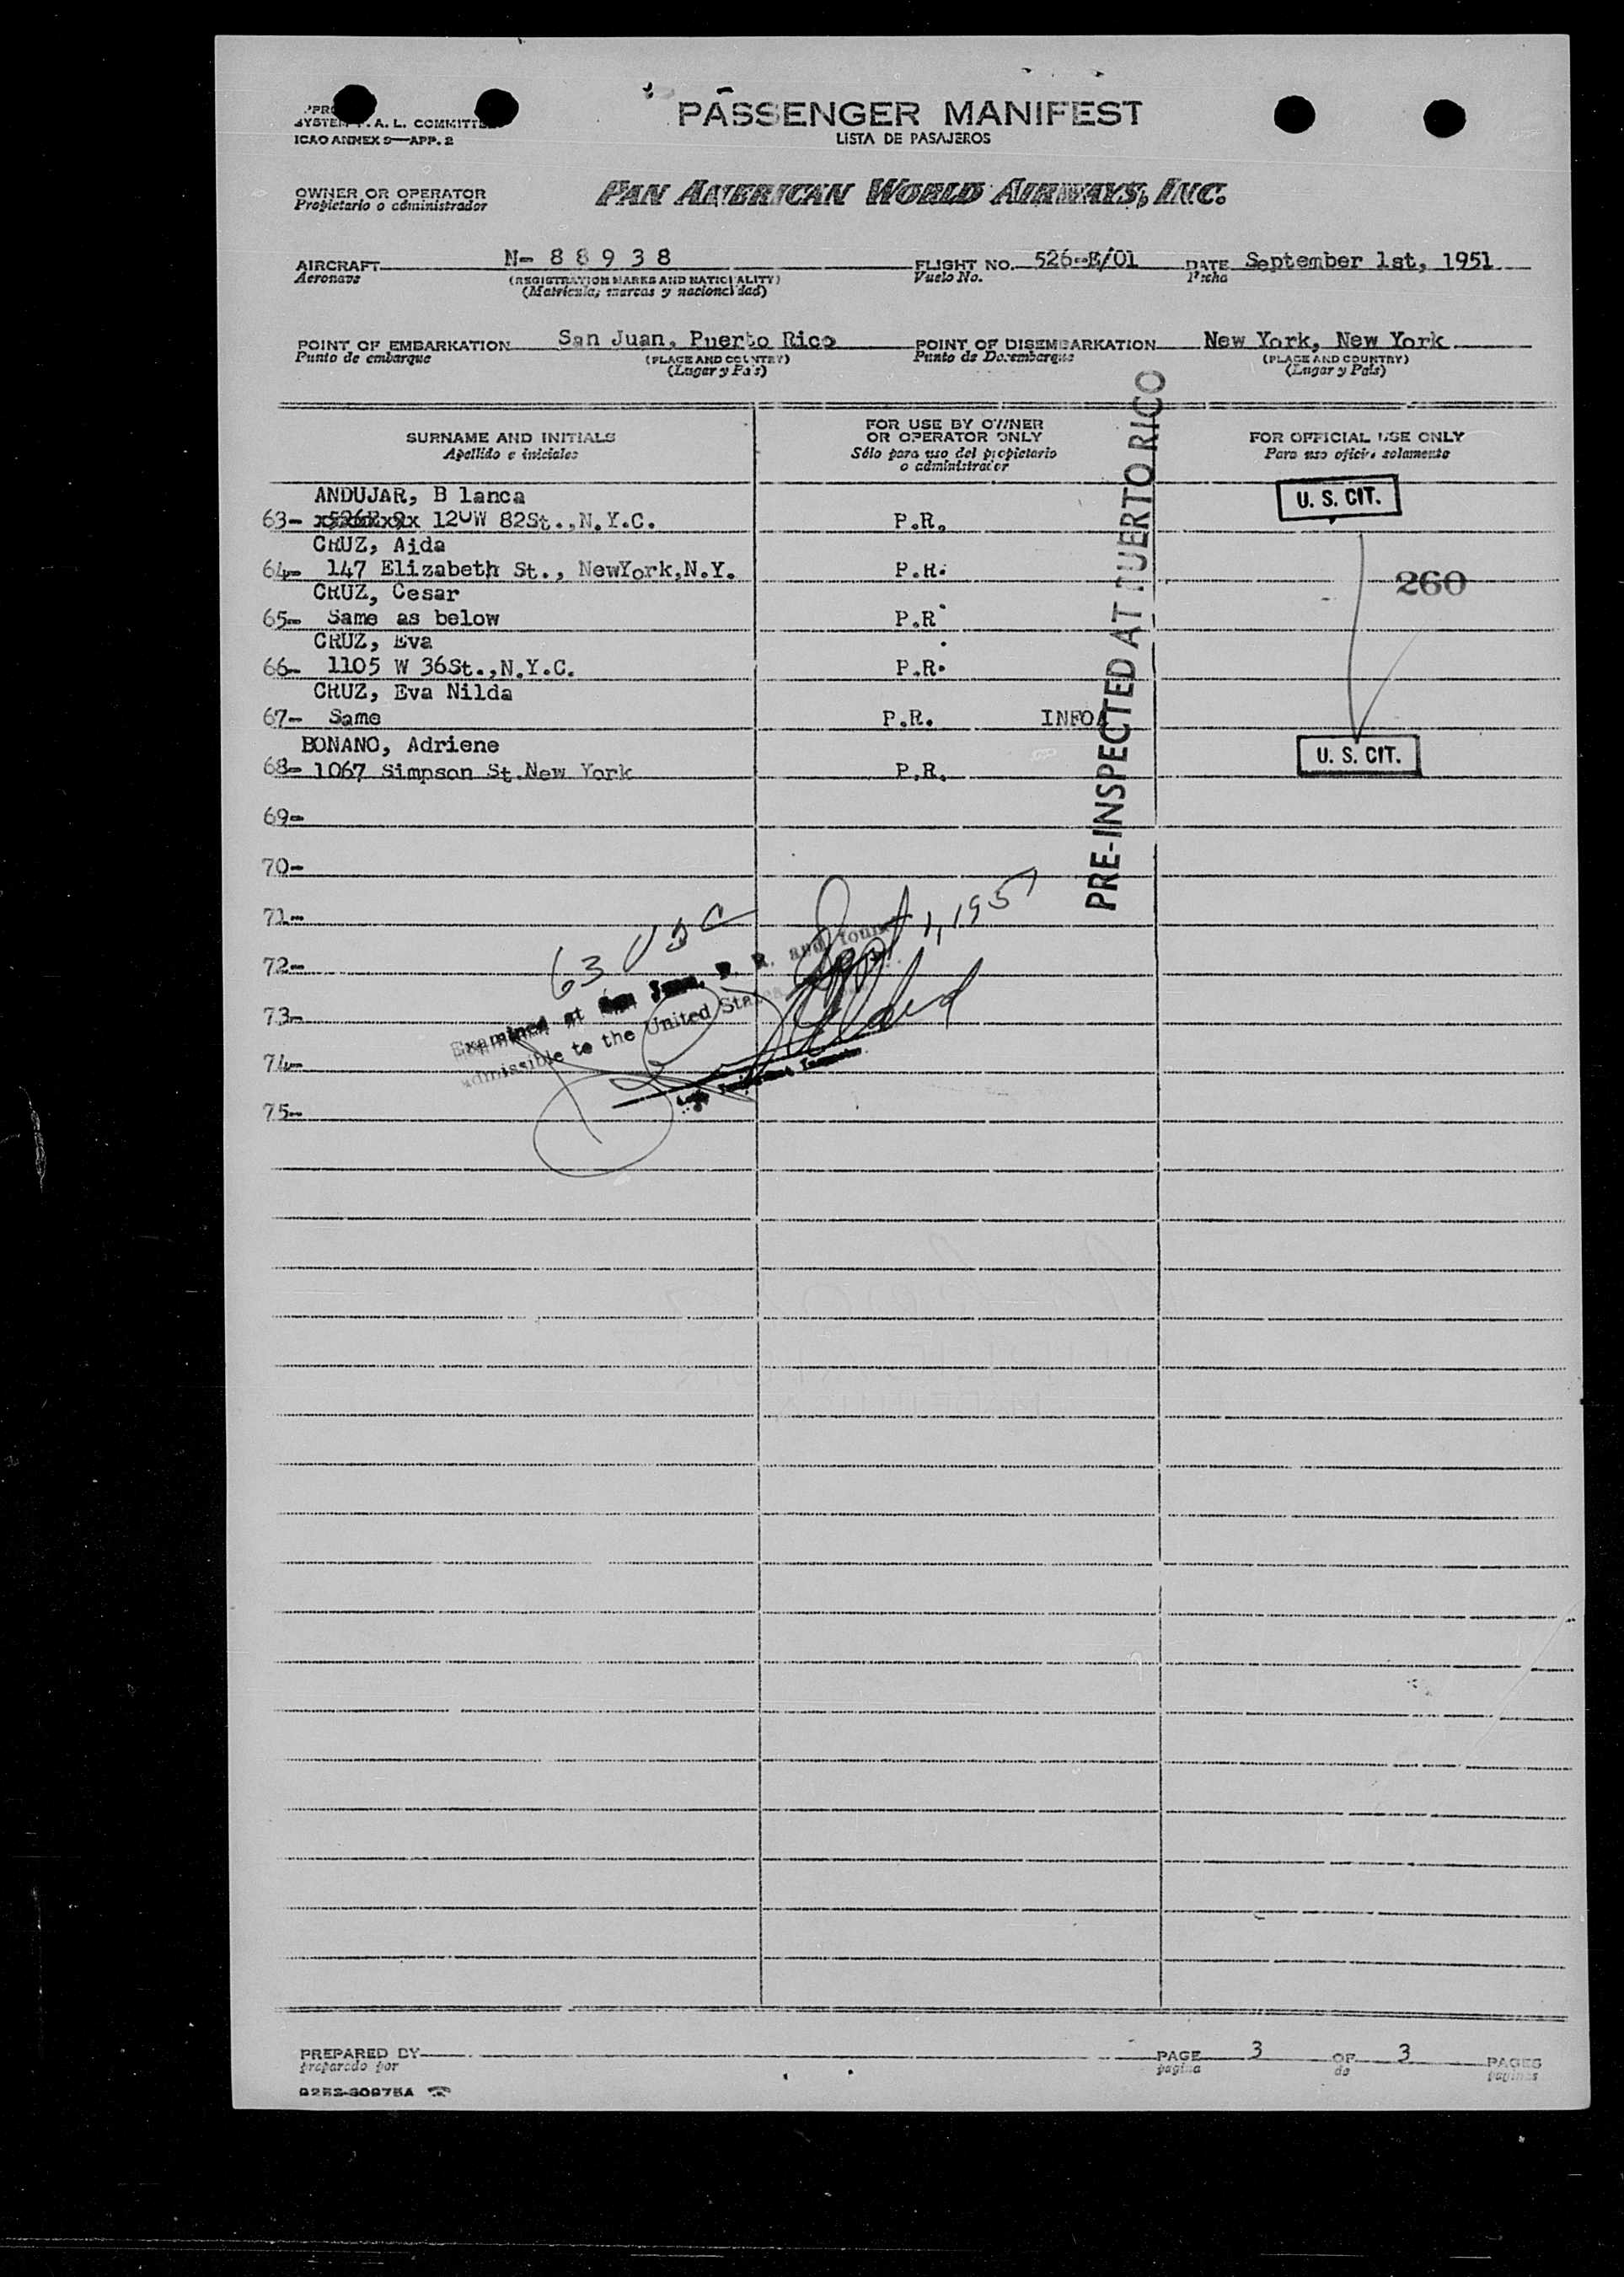 PASSENGER MANIFEST
LISTA DE PASAJEROS
A. L. COMMITTEE
ICAO ANNEX 9—APP. 2
OWNER OR OPERATOR
Propietario o administrador
PAN AMERICAN WORLD AIRWAYS, INC.
AIRCRAFT N- 8 8 9 3 8 FLIGHT NO. 526-E/01 DATE September 1st, 1951
Aeronave (REGISTRATION MARKS AND NATIONALITY) Vuelo No. Fecha
(Matrícula, marcas y nacionalidad)
POINT OF EMBARKATION San Juan, Puerto Rico POINT OF DISEMBARKATION New York, New York
Punto de embarque (PLACE AND COUNTRY) Punto de Desembarque (PLACE AND COUNTRY)
(Lugar y País) (Lugar y País)
SURNAME AND INITIALS FOR USE BY OWNER OR OPERATOR ONLY FOR OFFICIAL USE ONLY
Apellido e iniciales Sólo para uso del propietario o administrador Para uso oficial solamente
PRE-INSPECTED AT PUERTO RICO
ANDUJAR, B lanca U. S. CIT.
63- 120W 82St.,N.Y.C. P.R.
CRUZ, Aida
64- 147 Elizabeth St., NewYork,N.Y. P.R. 260
CRUZ, Cesar
65- Same as below P.R.
CRUZ, Eva
66- 1105 W 36St.,N.Y.C. P.R.
CRUZ, Eva Nilda
67- Same P.R. INFO
BONANO, Adriene U. S. CIT.
68- 1067 Simpson St.New York P.R.
69-
70-
71-
72-
73-
74-
75-
63 USC Sept 1, 1951
Examined at San Juan, P. R. and found
admissible to the United States
Immigrant Inspector
PREPARED BY PAGE 3 OF 3 PAGES
preparado por página de páginas